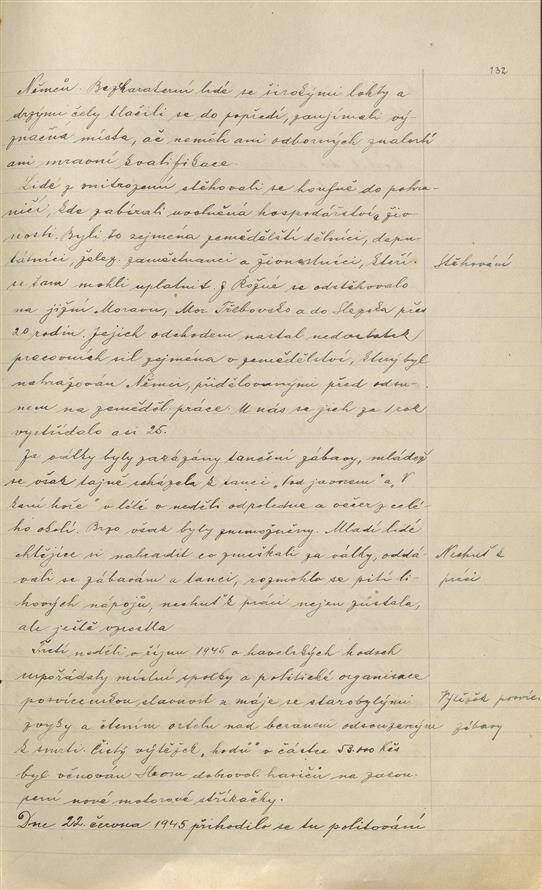 132
Němců. Bezkarakterní lidé se širokými lokty a
drzými čely tlačili se do popředí, zaujímali vý-
značná místa, ač neměli ani odborných znalostí
ani mravní kvalifikace.
Lidé z vnitrozemí stěhovali se houfně do pohra-
ničí, kde zabírali uvolněná hospodářství, živ-
nosti. Byli to zejména zemědělští dělníci, depu-
tátníci, želez. zaměstnanci a živnostníci, kteří
Stěhování
se tam mohli uplatnit. Z Rožné se odstěhovalo
na jižní Moravu, Mor. Třebovsko a do Slezska přes
20 rodin. Jejich odchodem nastal nedostatek
pracovních sil zejména v zemědělství, který byl
nahrazován Němci, přidělovanými před odsu-
nem na zeměděl. práce. U nás se jich za 1 rok
vystřídalo asi 25.
Za války byly zakázány tančení zábavy, mládež
se však tajně scházela k tanci „Pod javorem" a „V
hoře" v létě v neděli odpoledne a večer z celé-
ho okolí. Brzo však byly znemožněny. Mladí lidé
chtějíce si nahradit co zmeškali za války, oddá-
Nechuť k
vali se zábavám a tanci, rozmohlo se pití li-
práci
hových nápojů, nechuť k práci nejen zůstala,
ale ještě vzrostla
Třetí neděli v říjnu 1945 o havelských hodech
uspořádaly místní spolky a politické organisace
posvícenskou slavnost u máje se starobylými
Výtěžek
zvyky a čtením ortelu nad beranem odsouzeným
zábavy
k smrti. Čistý výtěžek „hodů" v částce 53.000 Kčs
byl věnován Sboru dobrovol. hasičů na zakou-
pení nové motorové stříkačky.
Dne 22. června 1945 přihodilo se tu politování